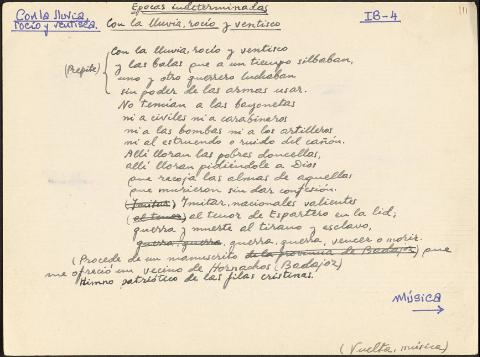 Epocas indeterminadas
Con la lluvia,
rocío y ventisca.
Con la lluvia, rocío y ventisco
IB-4
Con la lluvia, rocío y ventisco
(Repite)
y las balas que a un tiempo silbaban,
uno y otro guerrero luchaban
sin poder de las armas usar.
No temían a las bayonetas
ni a civiles ni a carabineros
ni a las bombas ni a los artilleros
ni al estruendo o ruido del cañón.
Allí lloran las pobres doncellas,
allí lloran pidiéndole a Dios
que recoja las almas de aquellas
que murieron sin dar confesión.
(Imitar) Imitar, nacionales valientes
(al tenor) al tenor de Espartero en la lid;
guerra y muerte al tirano y esclavo,
guerra, guerra, guerra, guerra, vencer o morir.
(Procede de un manuscrito de la provincia de Badajoz) que
me ofreció un vecino de Hornachos (Badajoz)
Himno patriótico de las filas cristinas.
Música
(Vuelta, música)